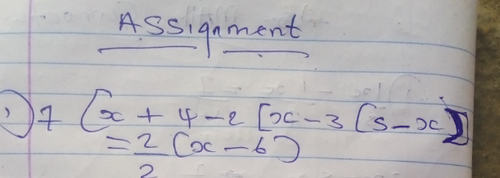 Assignment
1) 7 (x + 4 - 2 [x - 3 (5 - x)]
= 2/2 (x - 6)